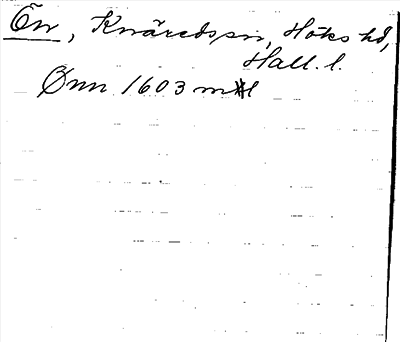 Ön, Knäredssn, Höks hd,
Hall. l.
Ønn 1603 ml